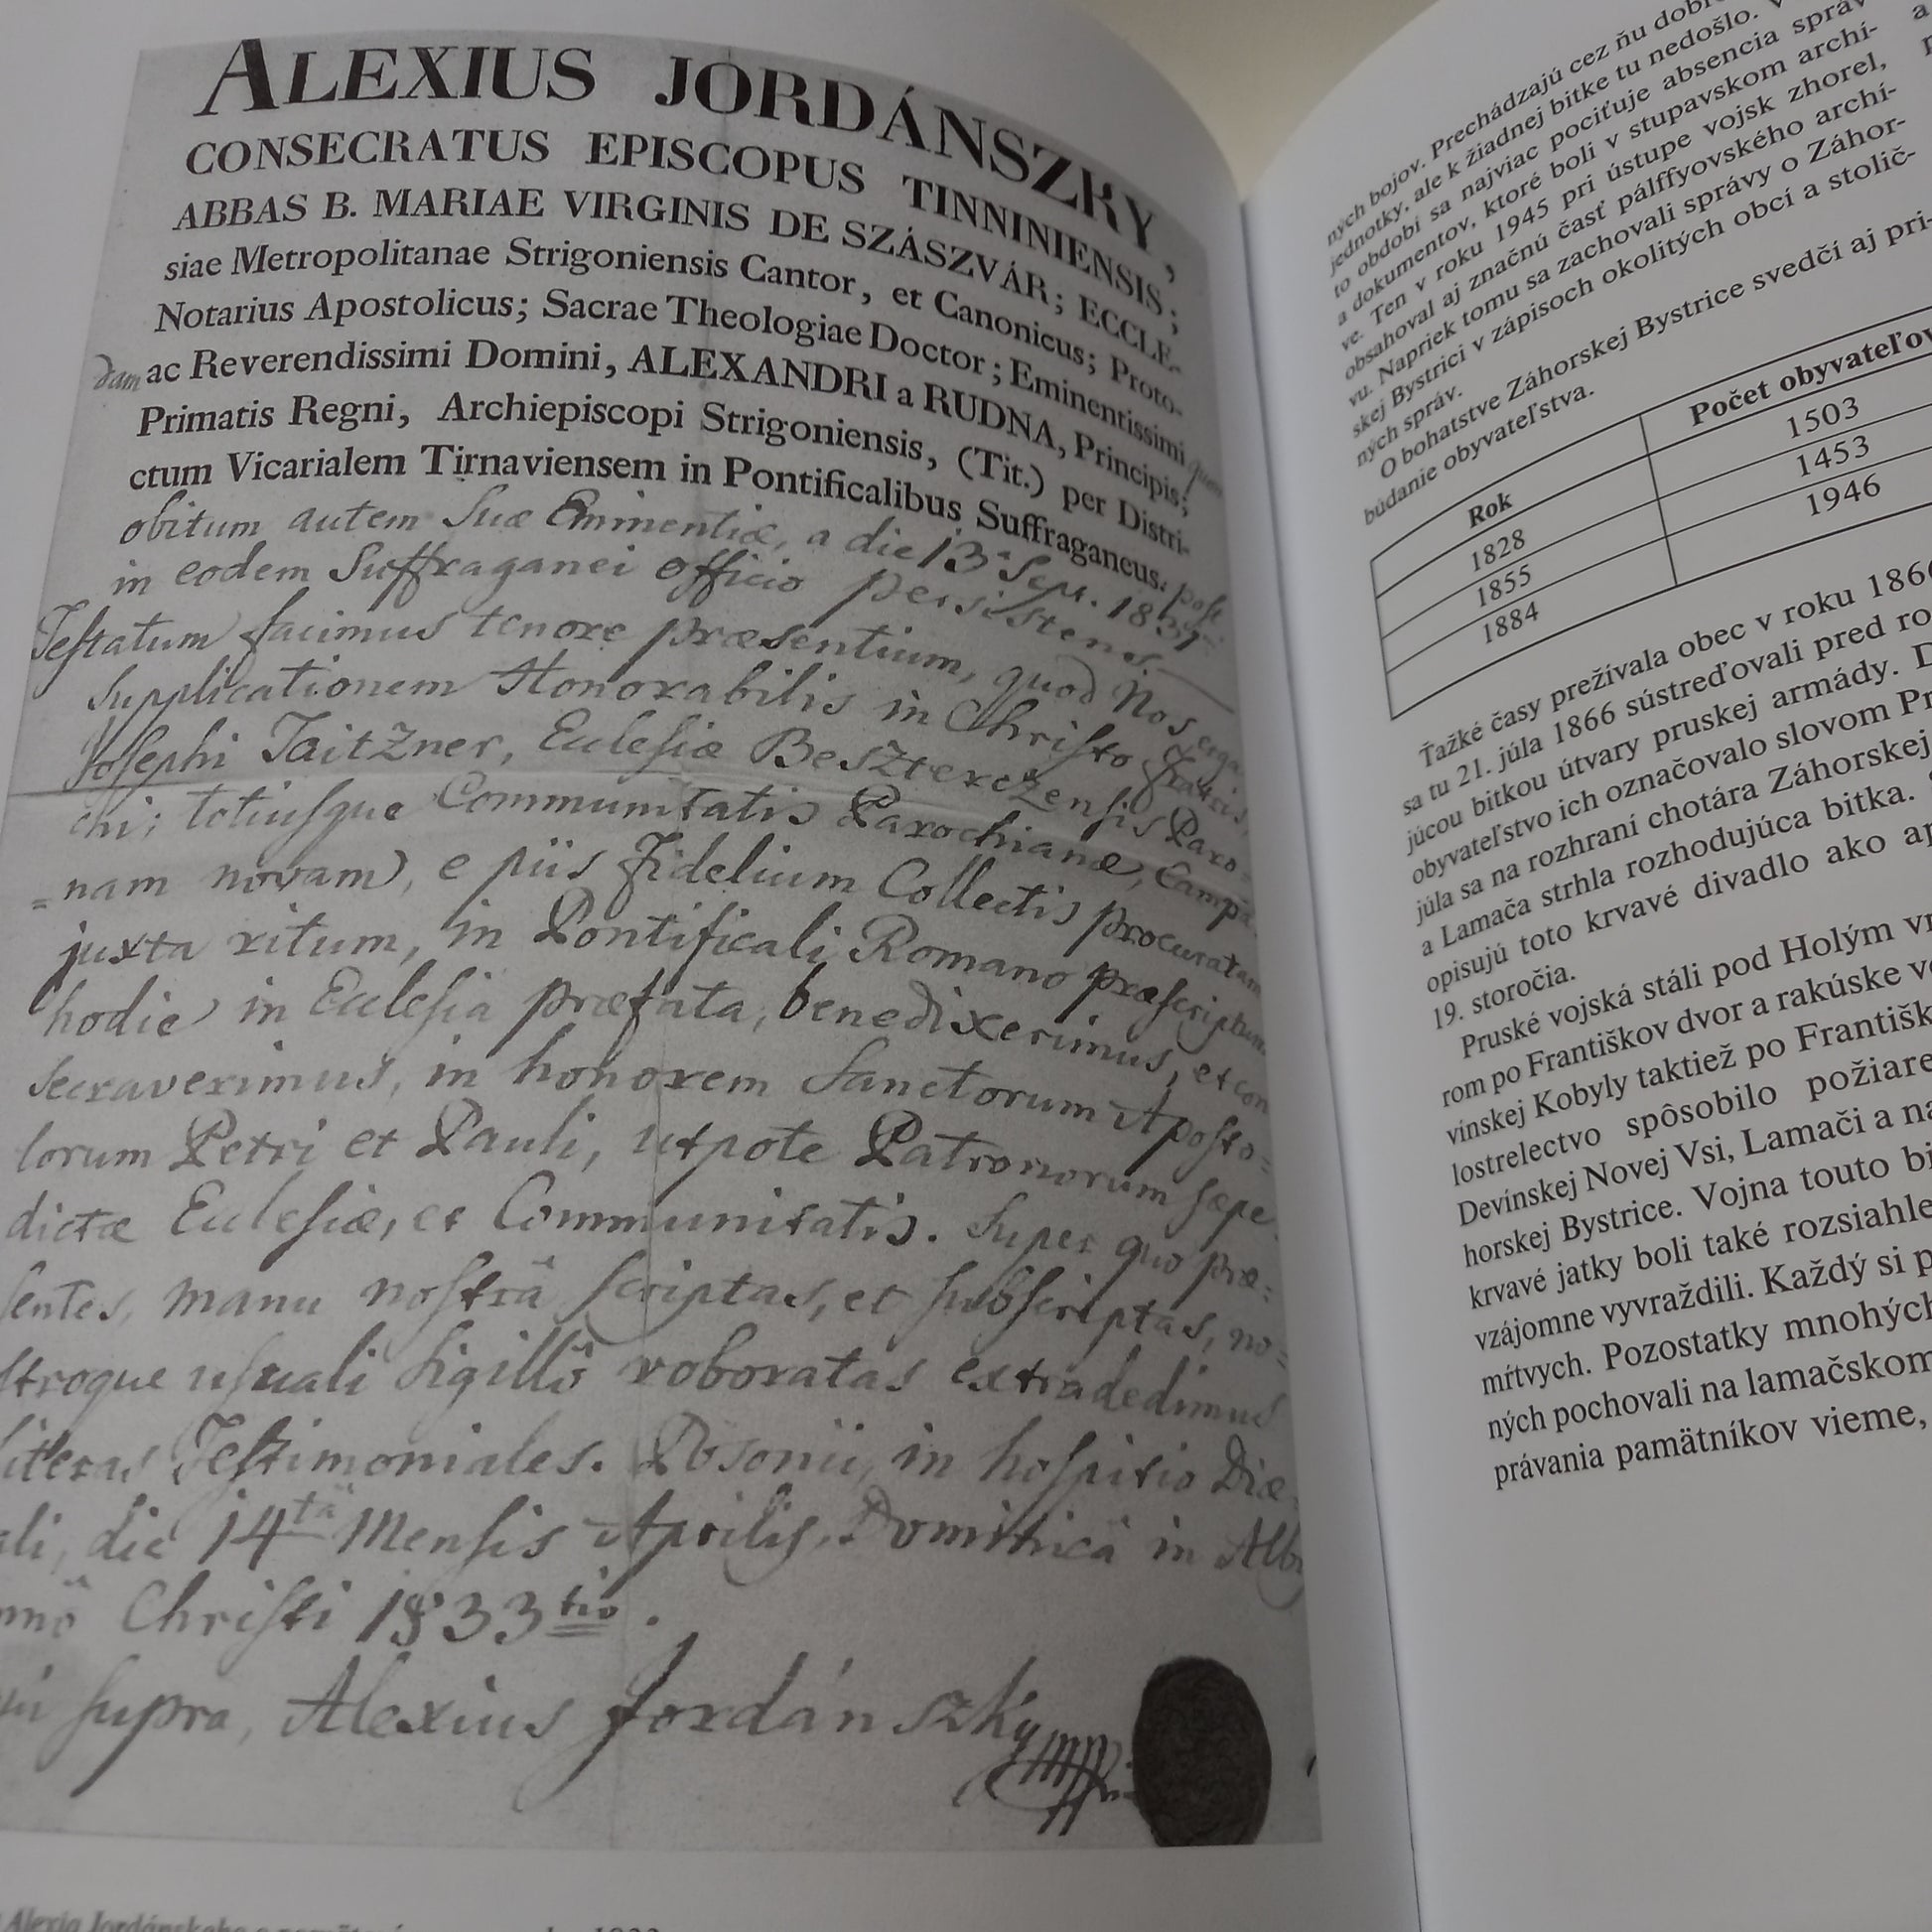 ALEXIUS JORDÁNSZKY,
CONSECRATUS EPISCOPUS TINNINIENSIS;
ABBAS B. MARIAE VIRGINIS DE SZÁSZVÁR; ECCLE-
siae Metropolitanae Strigoniensis Cantor, et Canonicus; Proto-
Notarius Apostolicus; Sacrae Theologiae Doctor; Eminentissimi
ac Reverendissimi Domini, ALEXANDRI a RUDNA, Principis;
Primatis Regni, Archiepiscopi Strigoniensis, (Tit.) per Distri-
ctum Vicarialem Tirnaviensem in Pontificalibus Suffraganeus. post
obitum autem Suæ Eminentiæ, a die 13a Sept. 1831
in eodem Suffraganei officio persistens.
Testatum facimus tenore præsentium, quod Nos erga
Supplicationem Honorabilis in Christo Fratris,
Josephi Taitzner, Ecclesiæ Beszterczensis Paro-
chi; totiusque Communitatis Parochianæ, Campa
=nam novam, e piis Fidelium Collectis procuratam
juxta ritum, in Pontificali Romano præscriptum,
hodie in Ecclesia præfata, benedixerimus, et con
secraverimus, in honorem Sanctorum Aposto=
lorum Petri et Pauli, utpote Patronorum sæpe
dictæ Ecclesiæ, et Communitatis. Super quo præ=
sentes, manu nostrâ scriptas, et subscriptas, no=
stroque usuali Sigillô roboratas extradedimus
literas Testimoniales. Posonii, in hospitio Diæ-
ali, die 14tâ Mensis Aprilis, Dominicâ in Albis
nnô Christi 1833tio.
supra, Alexius Jordánszky mp.
Alexia Jordánskeho
ných bojov. Prechádzajú cez ňu
jednotky, ale k žiadnej bitke tu nedošlo.
to období sa najviac pociťuje absencia správ
a dokumentov, ktoré boli v stupavskom archí-
ve. Ten v roku 1945 pri ústupe vojsk zhorel,
obsahoval aj značnú časť pálffyovského archí-
vu. Napriek tomu sa zachovali správy o Záhor-
skej Bystrici v zápisoch okolitých obcí a stolič-
ných správ.
O bohatstve Záhorskej Bystrice svedčí aj pri-
búdanie obyvateľstva.
Rok Počet obyvateľov
1828 1503
1855 1453
1884 1946
Ťažké časy prežívala obec v roku 1866
sa tu 21. júla 1866 sústreďovali pred
júcou bitkou útvary pruskej armády.
obyvateľstvo ich označovalo slovom
júla sa na rozhraní chotára Záhorskej
a Lamača strhla rozhodujúca bitka.
opisujú toto krvavé divadlo ako
19. storočia.
Pruské vojská stáli pod Holým
rom po Františkov dvor a rakúske
vínskej Kobyly taktiež po
lostrelectvo spôsobilo
Devínskej Novej Vsi, Lamači a
horskej Bystrice. Vojna touto
krvavé jatky boli také rozsiahle
vzájomne vyvraždili. Každý si
mŕtvych. Pozostatky mnohých
ných pochovali na lamačskom
právania pamätníkov vieme,